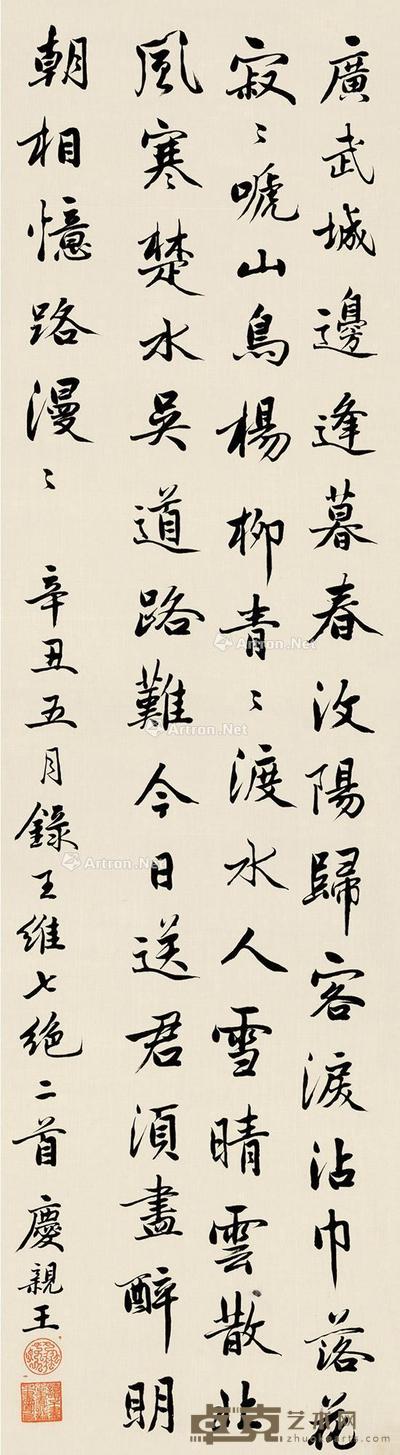 廣武城邊逢暮春汶陽歸客淚沾巾落花
寂〻啼山鳥楊柳青〻渡水人雪晴雲散北
風寒楚水吳道路難今日送君須盡醉明
朝相憶路漫〻
辛丑五月錄王維七絕二首 慶親王
Artron.Net
Artron.Net
Artron.Net
Artron.Net
卓克艺术网
zhuokearts.com